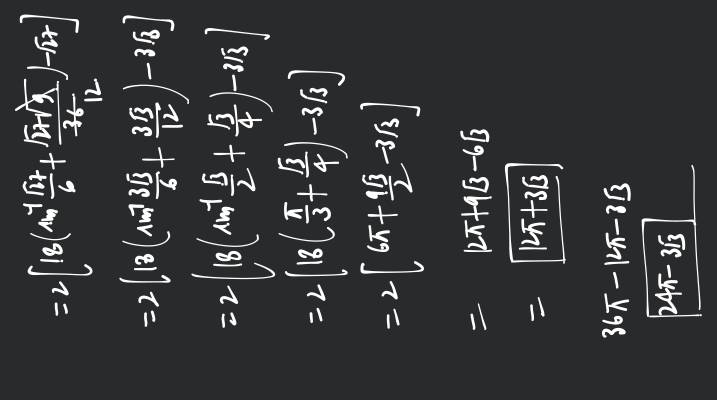 = 2 [ 18 ( sin⁻¹ √27/6 + √27 √9/36 12 ) - √27 ]
= 2 [ 18 ( sin⁻¹ 3√3/6 + 3√3/12 ) - 3√3 ]
= 2 [ 18 ( sin⁻¹ √3/2 + √3/4 ) - 3√3 ]
= 2 [ 18 ( π/3 + √3/4 ) - 3√3 ]
= 2 [ 6π + 9√3/2 - 3√3 ]
= 12π + 9√3 - 6√3
= 12π + 3√3
36π - 12π - 3√3
24π - 3√3